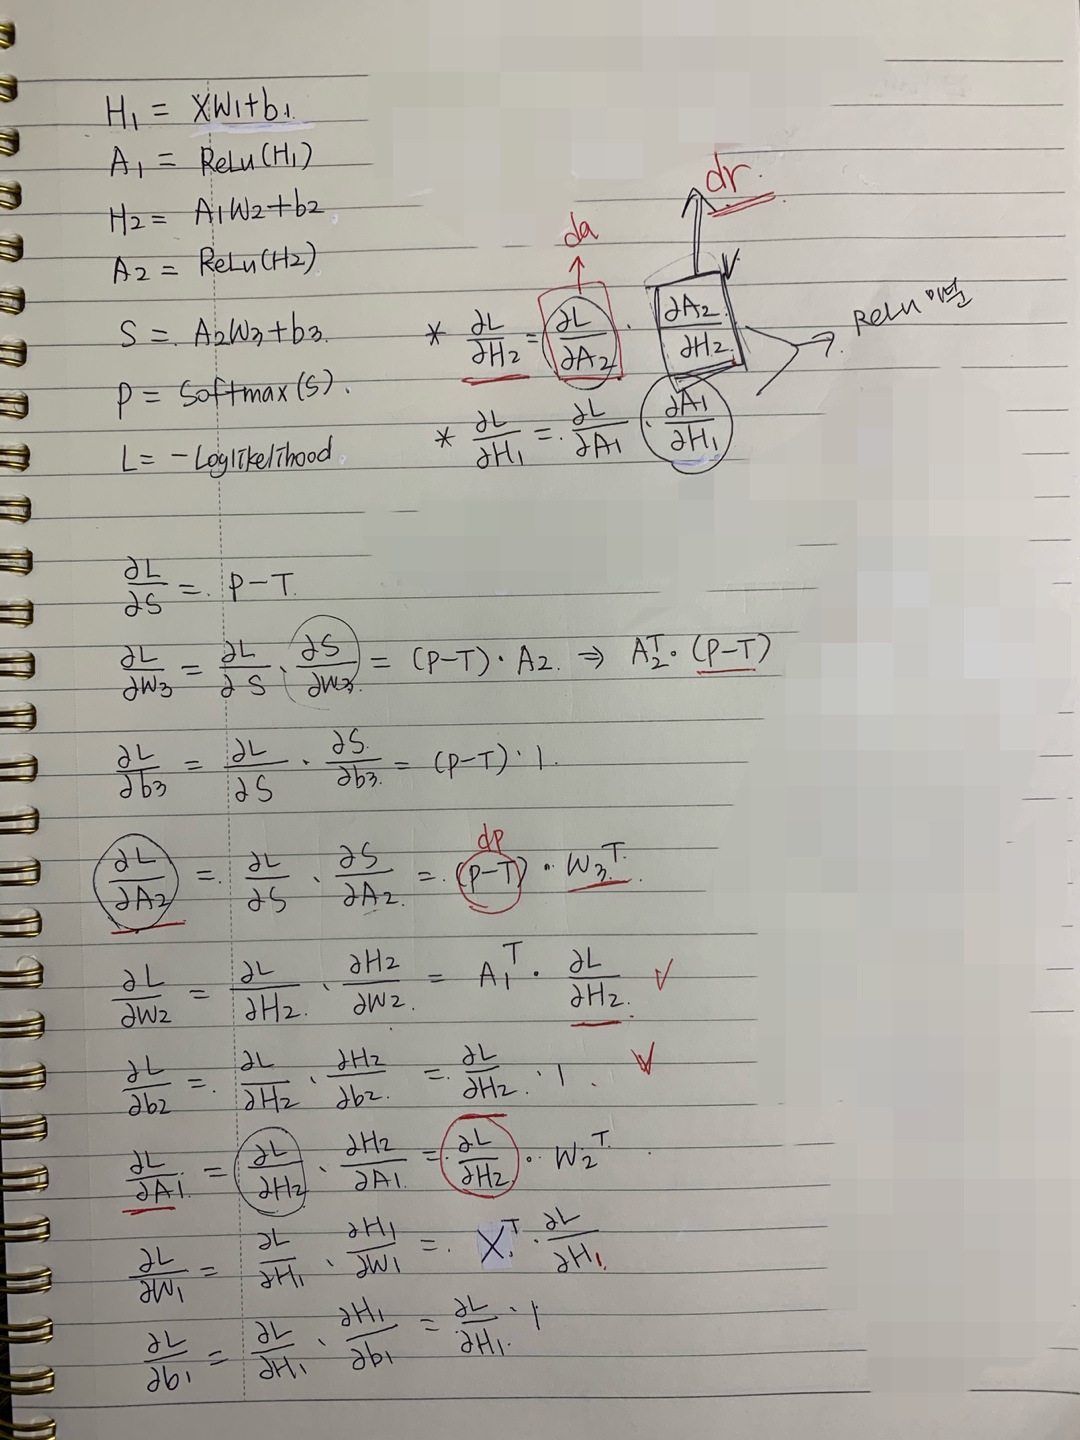 H₁ = XW₁+b₁.
A₁ = ReLu(H₁)
H₂ = A₁W₂+b₂
A₂ = ReLu(H₂)
S = A₂W₃+b₃.
P = Softmax(S).
L = -Loglikelihood.
dr.
da
* ∂L/∂H₂ = ∂L/∂A₂ · ∂A₂/∂H₂ → ReLu 미분
* ∂L/∂H₁ = ∂L/∂A₁ · ∂A₁/∂H₁
∂L/∂S = P-T.
∂L/∂W₃ = ∂L/∂S · ∂S/∂W₃ = (P-T)·A₂. ⇒ A₂ᵀ·(P-T)
∂L/∂b₃ = ∂L/∂S · ∂S/∂b₃ = (P-T)·1.
dp
∂L/∂A₂ = ∂L/∂S · ∂S/∂A₂ = (P-T) · W₃ᵀ.
∂L/∂W₂ = ∂L/∂H₂ · ∂H₂/∂W₂ = A₁ᵀ · ∂L/∂H₂. ✓
∂L/∂b₂ = ∂L/∂H₂ · ∂H₂/∂b₂ = ∂L/∂H₂ · 1. ✓
∂L/∂A₁ = ∂L/∂H₂ · ∂H₂/∂A₁ = ∂L/∂H₂ · W₂ᵀ
∂L/∂W₁ = ∂L/∂H₁ · ∂H₁/∂W₁ = Xᵀ · ∂L/∂H₁
∂L/∂b₁ = ∂L/∂H₁ · ∂H₁/∂b₁ = ∂L/∂H₁ · 1